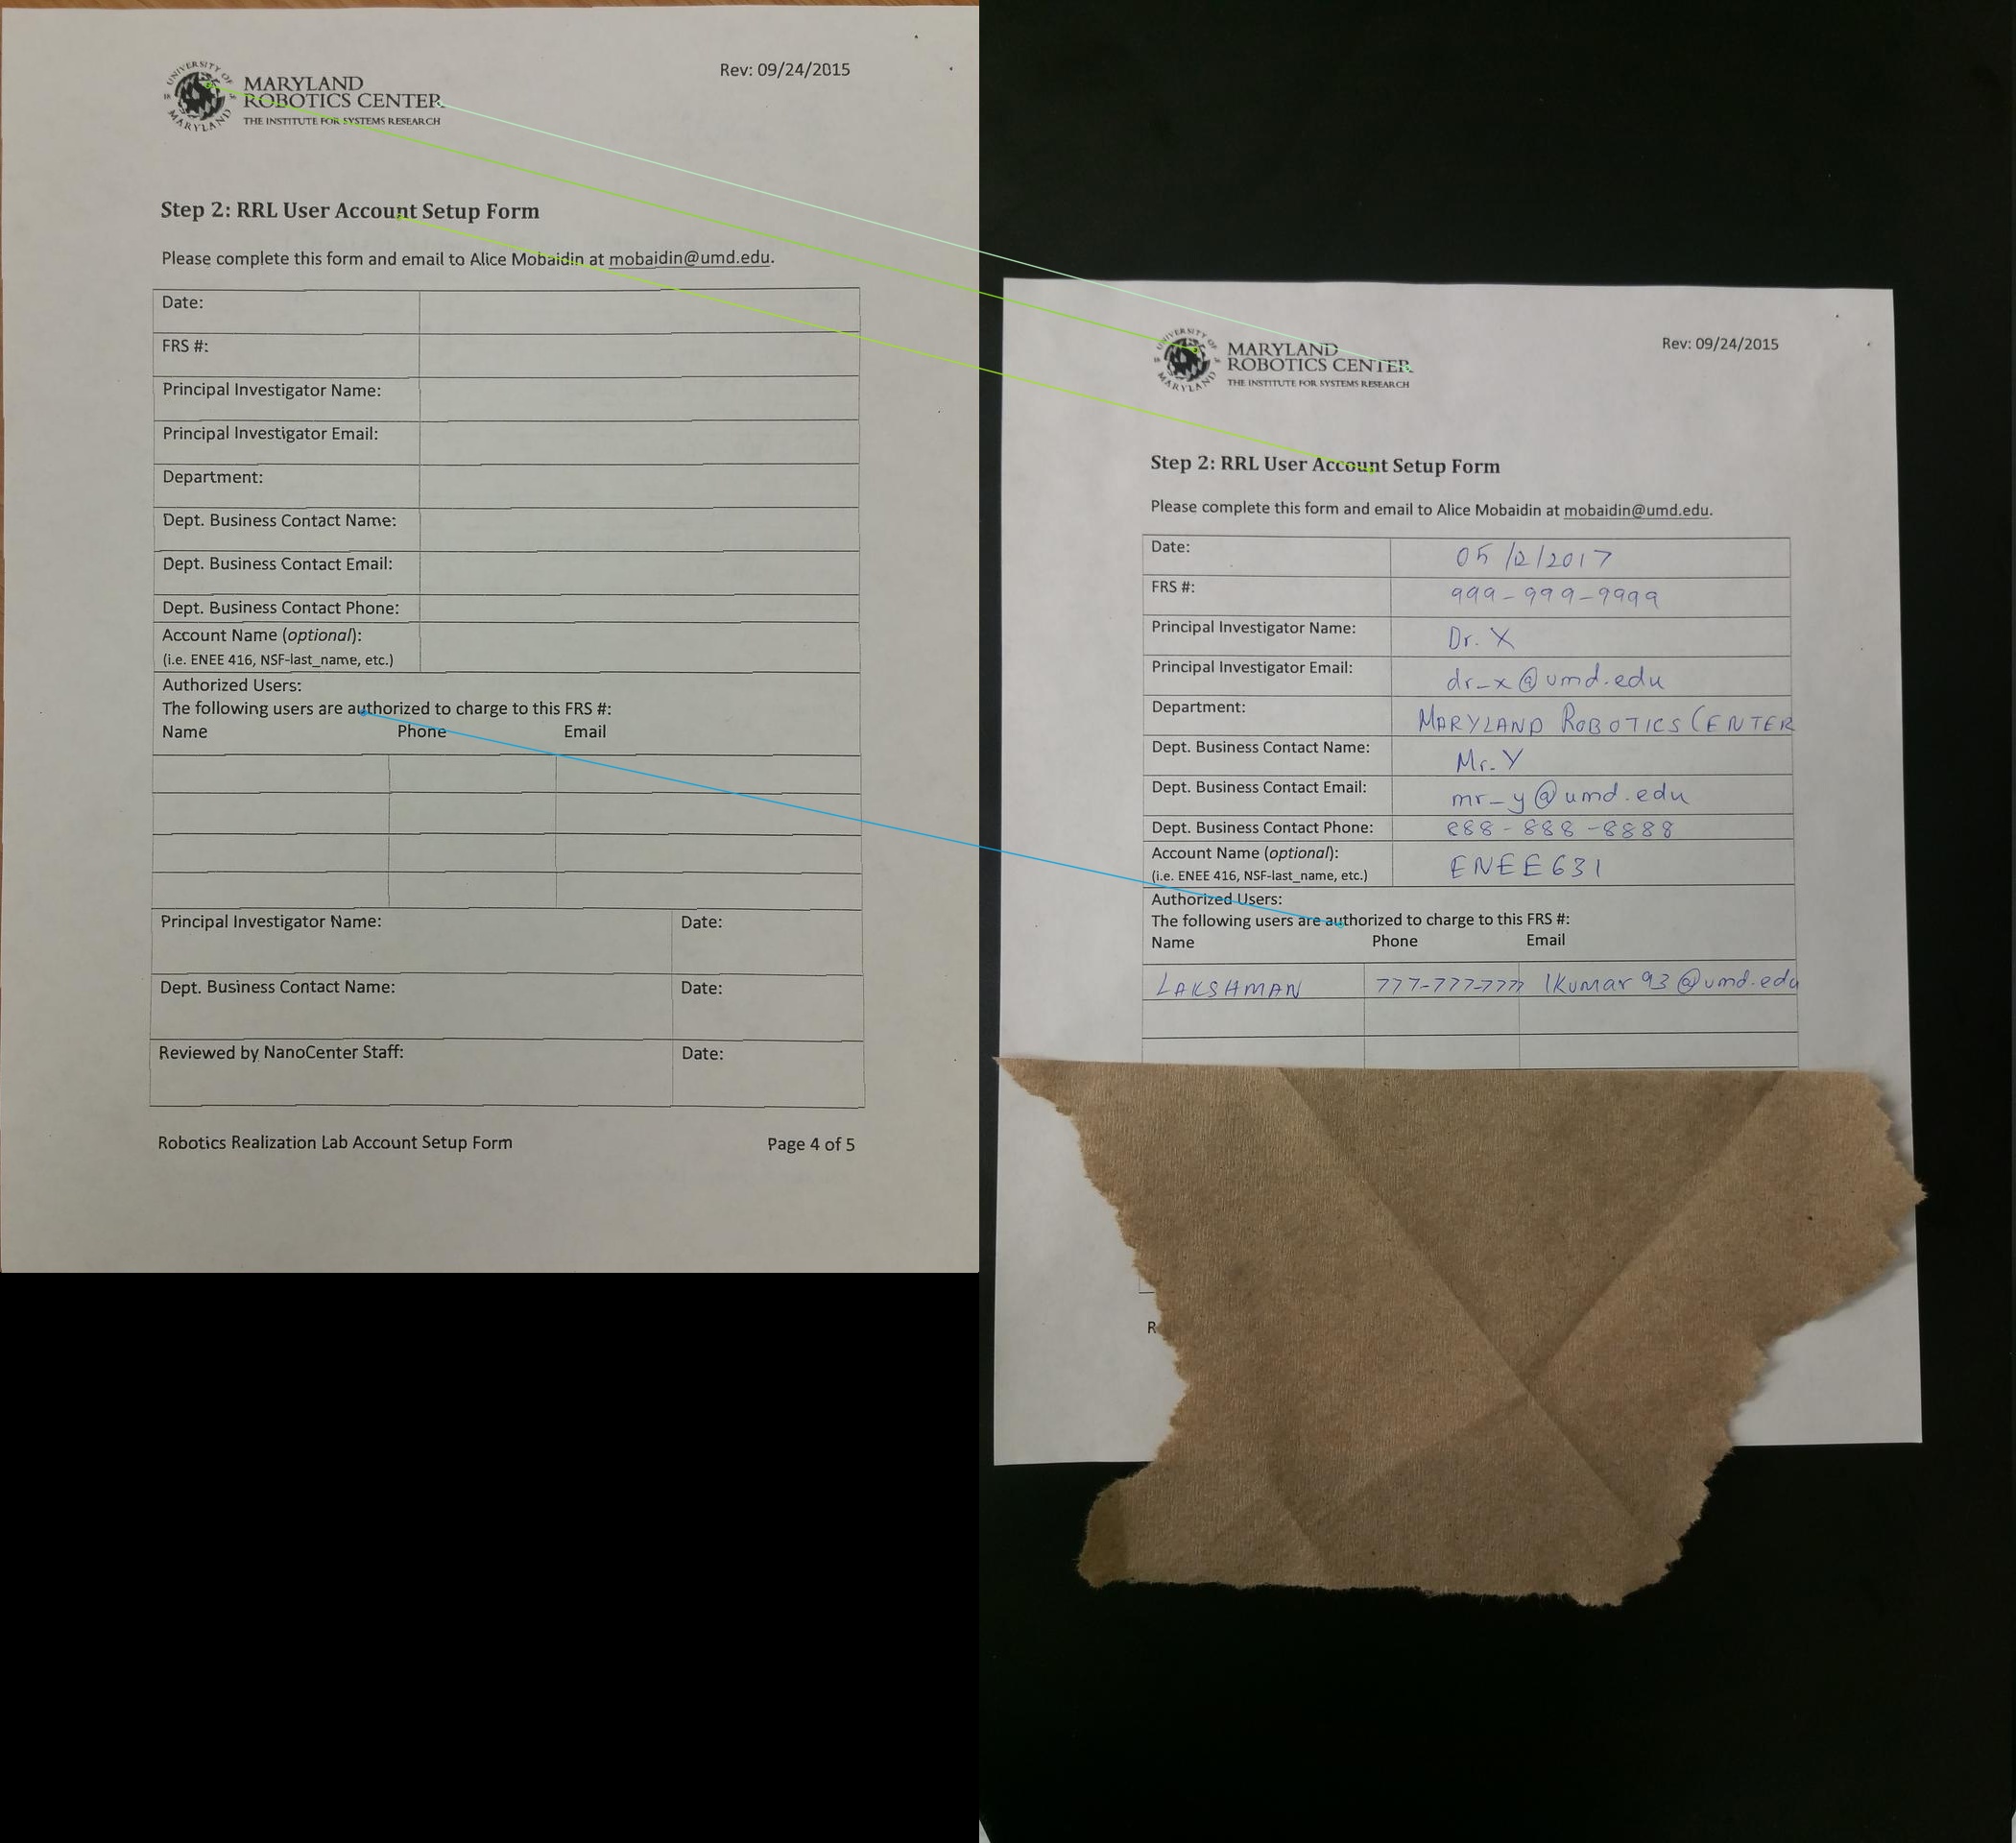 UNIVERSITY OF
MARYLAND
18 56
MARYLAND
ROBOTICS CENTER
THE INSTITUTE FOR SYSTEMS RESEARCH
Rev: 09/24/2015
Step 2: RRL User Account Setup Form
Please complete this form and email to Alice Mobaidin at mobaidin@umd.edu.
Date:
FRS #:
Principal Investigator Name:
Principal Investigator Email:
Department:
Dept. Business Contact Name:
Dept. Business Contact Email:
Dept. Business Contact Phone:
Account Name (optional):
(i.e. ENEE 416, NSF-last_name, etc.)
Authorized Users:
The following users are authorized to charge to this FRS #:
Name Phone Email
Principal Investigator Name: Date:
Dept. Business Contact Name: Date:
Reviewed by NanoCenter Staff: Date:
Robotics Realization Lab Account Setup Form Page 4 of 5
UNIVERSITY OF
MARYLAND
18 56
MARYLAND
ROBOTICS CENTER
THE INSTITUTE FOR SYSTEMS RESEARCH
Rev: 09/24/2015
Step 2: RRL User Account Setup Form
Please complete this form and email to Alice Mobaidin at mobaidin@umd.edu.
Date: 05/12/2017
FRS #: 999-999-9999
Principal Investigator Name: Dr. X
Principal Investigator Email: dr_x@umd.edu
Department: MARYLAND ROBOTICS CENTER
Dept. Business Contact Name: Mr. Y
Dept. Business Contact Email: mr_y@umd.edu
Dept. Business Contact Phone: 888-888-8888
Account Name (optional): ENEE631
(i.e. ENEE 416, NSF-last_name, etc.)
Authorized Users:
The following users are authorized to charge to this FRS #:
Name Phone Email
LAKSHMAN 777-777-7777 lkumar93@umd.edu
R